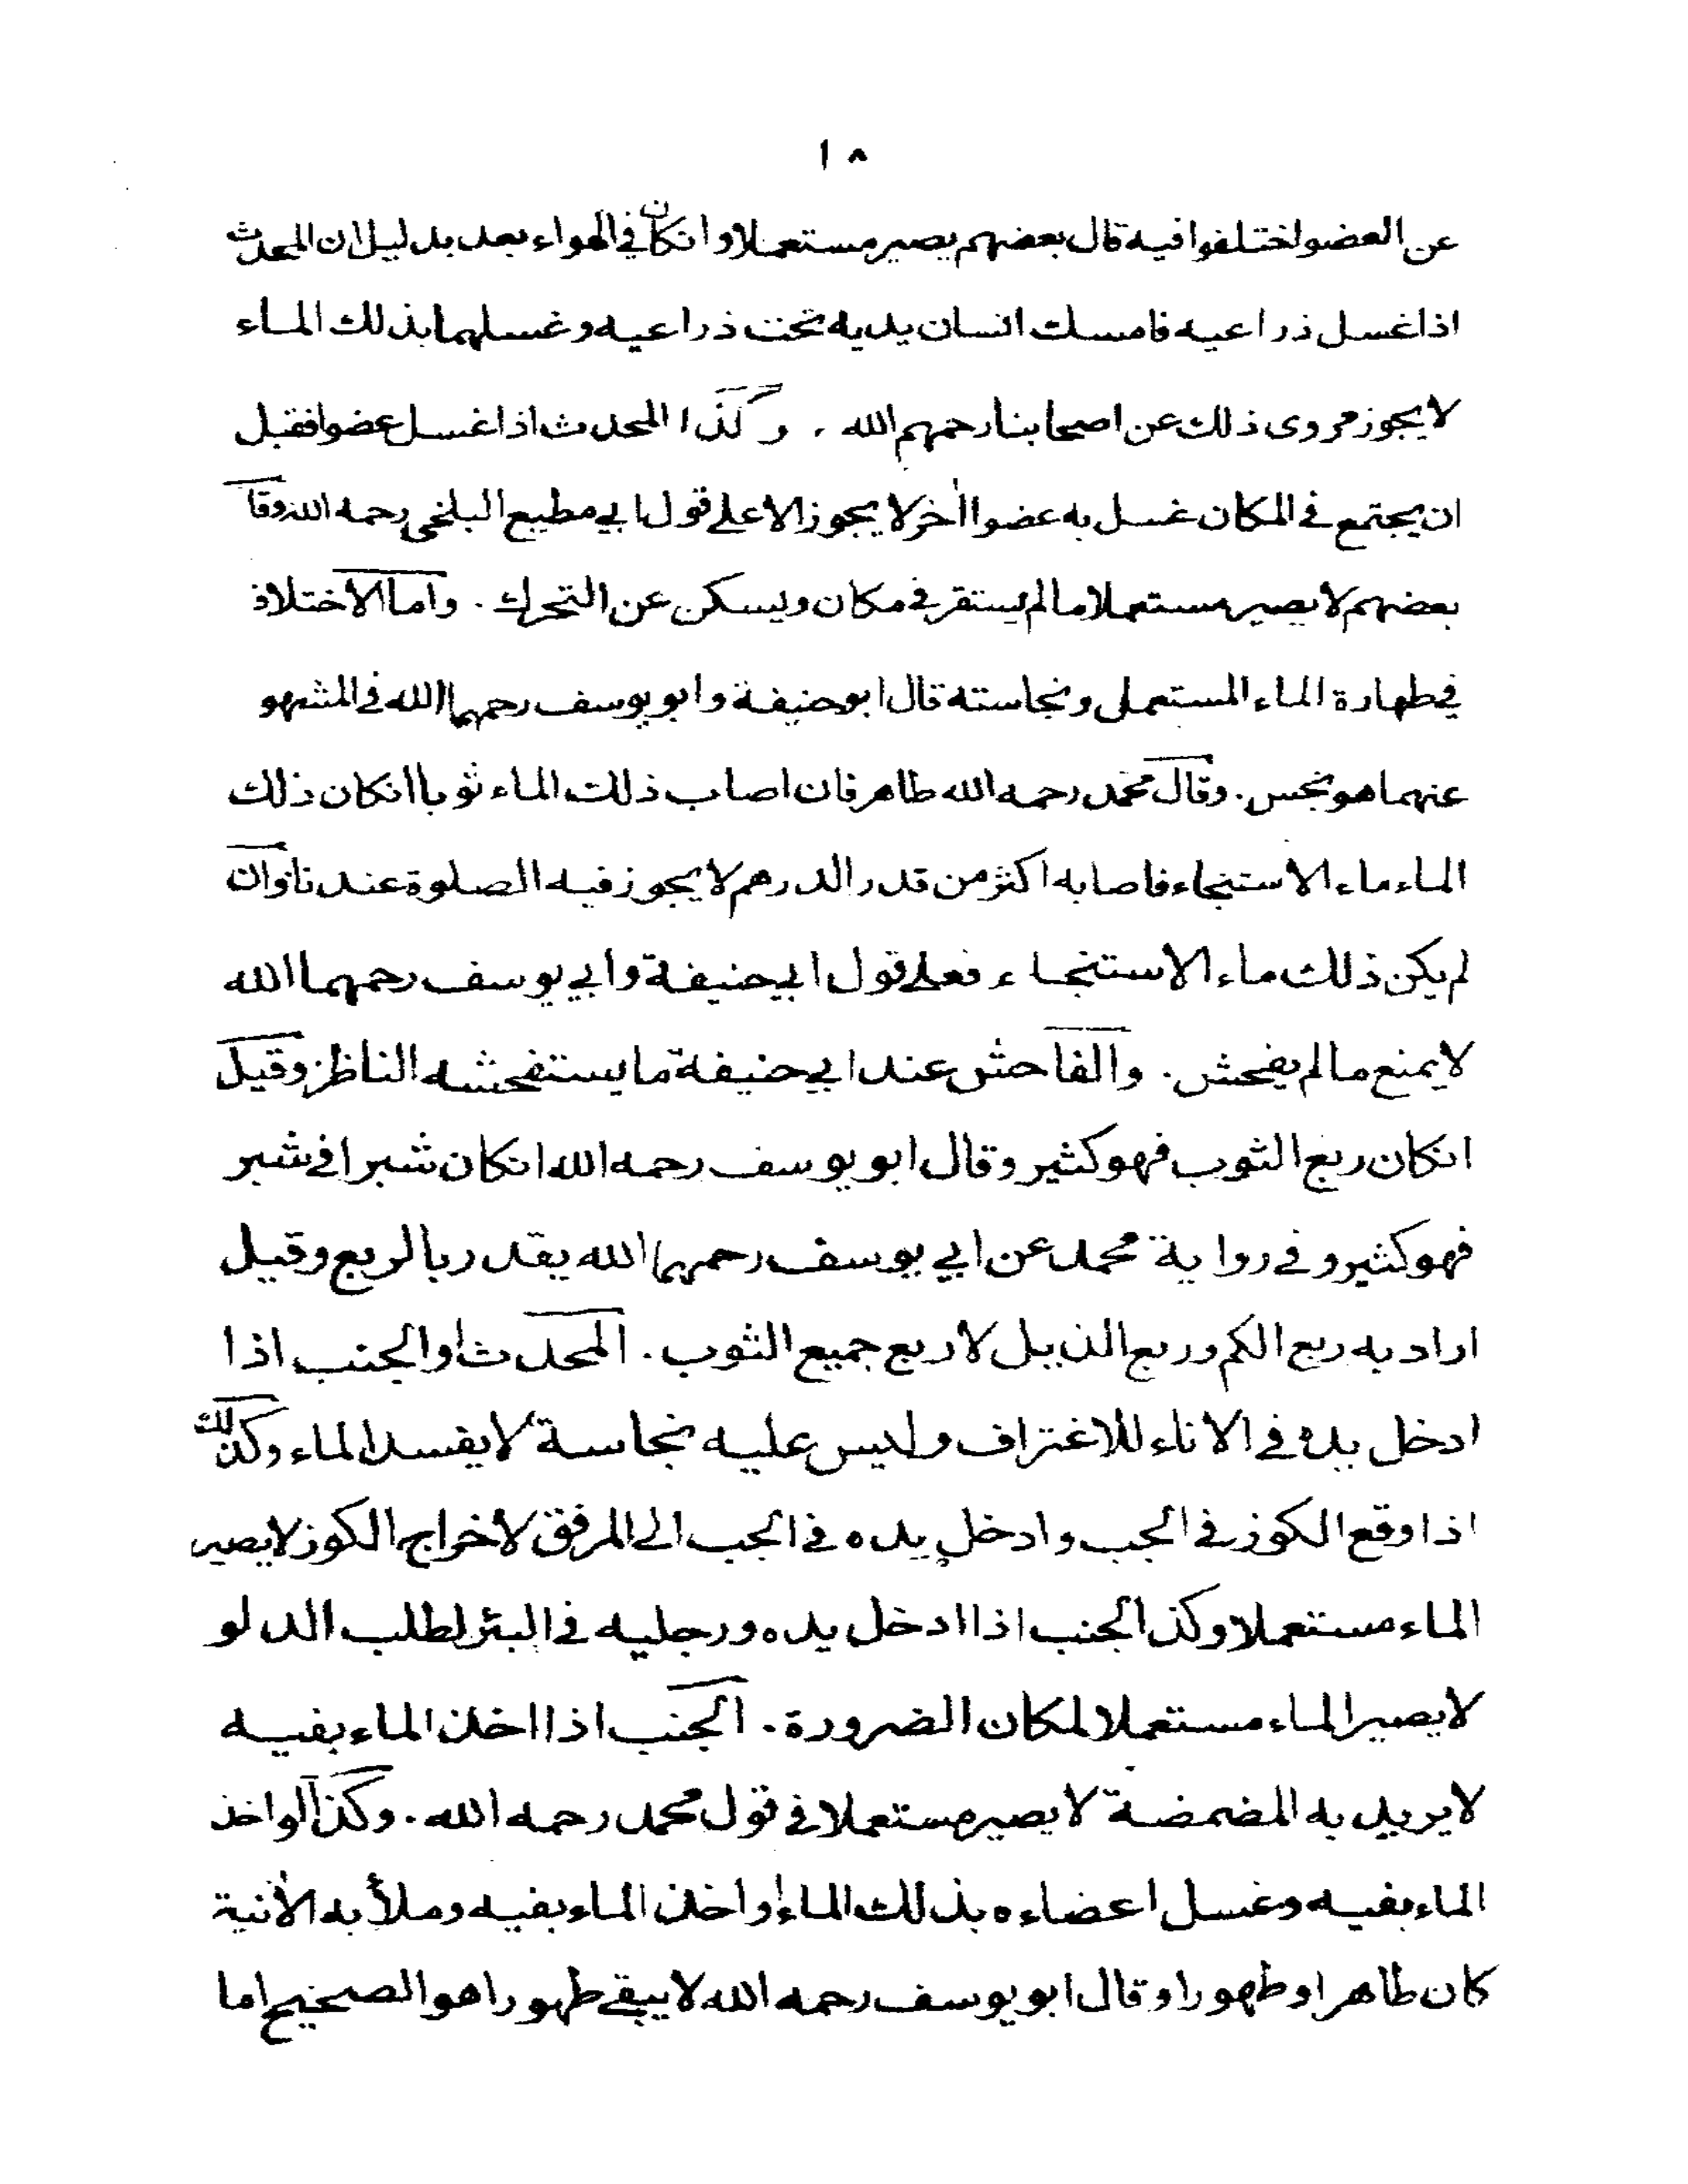 ١٨
عن العضو اختلفوا فيه قال بعضهم يصير مستعملا وانكان في الهواء بعد بدليل ان المحدث
اذا غسل ذراعيه فامسك انسان يديه تحت ذراعيه وغسلهما بذلك الماء
لا يجوز مروى ذلك عن اصحابنا رحمهم الله . وكذا المحدث اذا غسل عضوا فقبل
ان يجتمع في المكان غسل به عضوا اخر لا يجوز الا على قول ابي مطيع البلخي رحمه الله وقا
بعضهم لا يصير مستعملا ما لم يستقر في مكان ويسكن عن التحرك . واما الاختلاف
في طهارة الماء المستعمل ونجاسته قال ابو حنيفة وابو يوسف رحمهما الله في المشهو
عنهما هو نجس . وقال محمد رحمه الله طاهر فان اصاب ذلك الماء ثوبا انكان ذلك
الماء ماء الاستنجاء فاصابه اكثر من قدر الدرهم لا يجوز فيه الصلوة عندنا وان
لم يكن ذلك ماء الاستنجاء فعلى قول ابي حنيفة وابي يوسف رحمهما الله
لا يمنع ما لم يفحش . والفاحش عند ابي حنيفة ما يستفحشه الناظر وقيل
انكان ربع الثوب فهو كثير وقال ابو يوسف رحمه الله انكان شبرا في شبر
فهو كثير وفي رواية محمد عن ابي يوسف رحمهما الله يقدر بالربع وقيل
اراد به ربع الكم وربع الذيل لا ربع جميع الثوب . المحدث او الجنب اذا
ادخل يده في الاناء للاغتراف وليس عليه نجاسة لا يفسد الماء وكذلك
اذا وقع الكوز في الجب وادخل يده في الجب الى المرفق لاخراج الكوز لا يصير
الماء مستعملا وكذا الجنب اذا ادخل يده ورجليه في البئر لطلب الدلو
لا يصير الماء مستعملا لمكان الضرورة . الجنب اذا اخذ الماء بفيه
لا يريد به المضمضة لا يصير مستعملا في قول محمد رحمه الله . وكذا لو اخذ
الماء بفيه وغسل اعضاءه بذلك الماء او اخذ الماء بفيه وملأ به الآنية
كان طاهرا وطهورا وقال ابو يوسف رحمه الله لا يبقى طهورا هو الصحيح اما